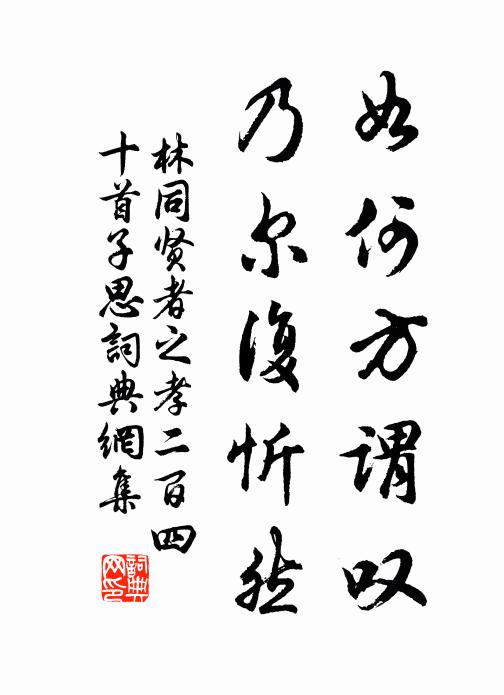 如何方谓叹
乃尔复忻然
林同贤者之孝二百四
十首子思词典網集
詞典网印